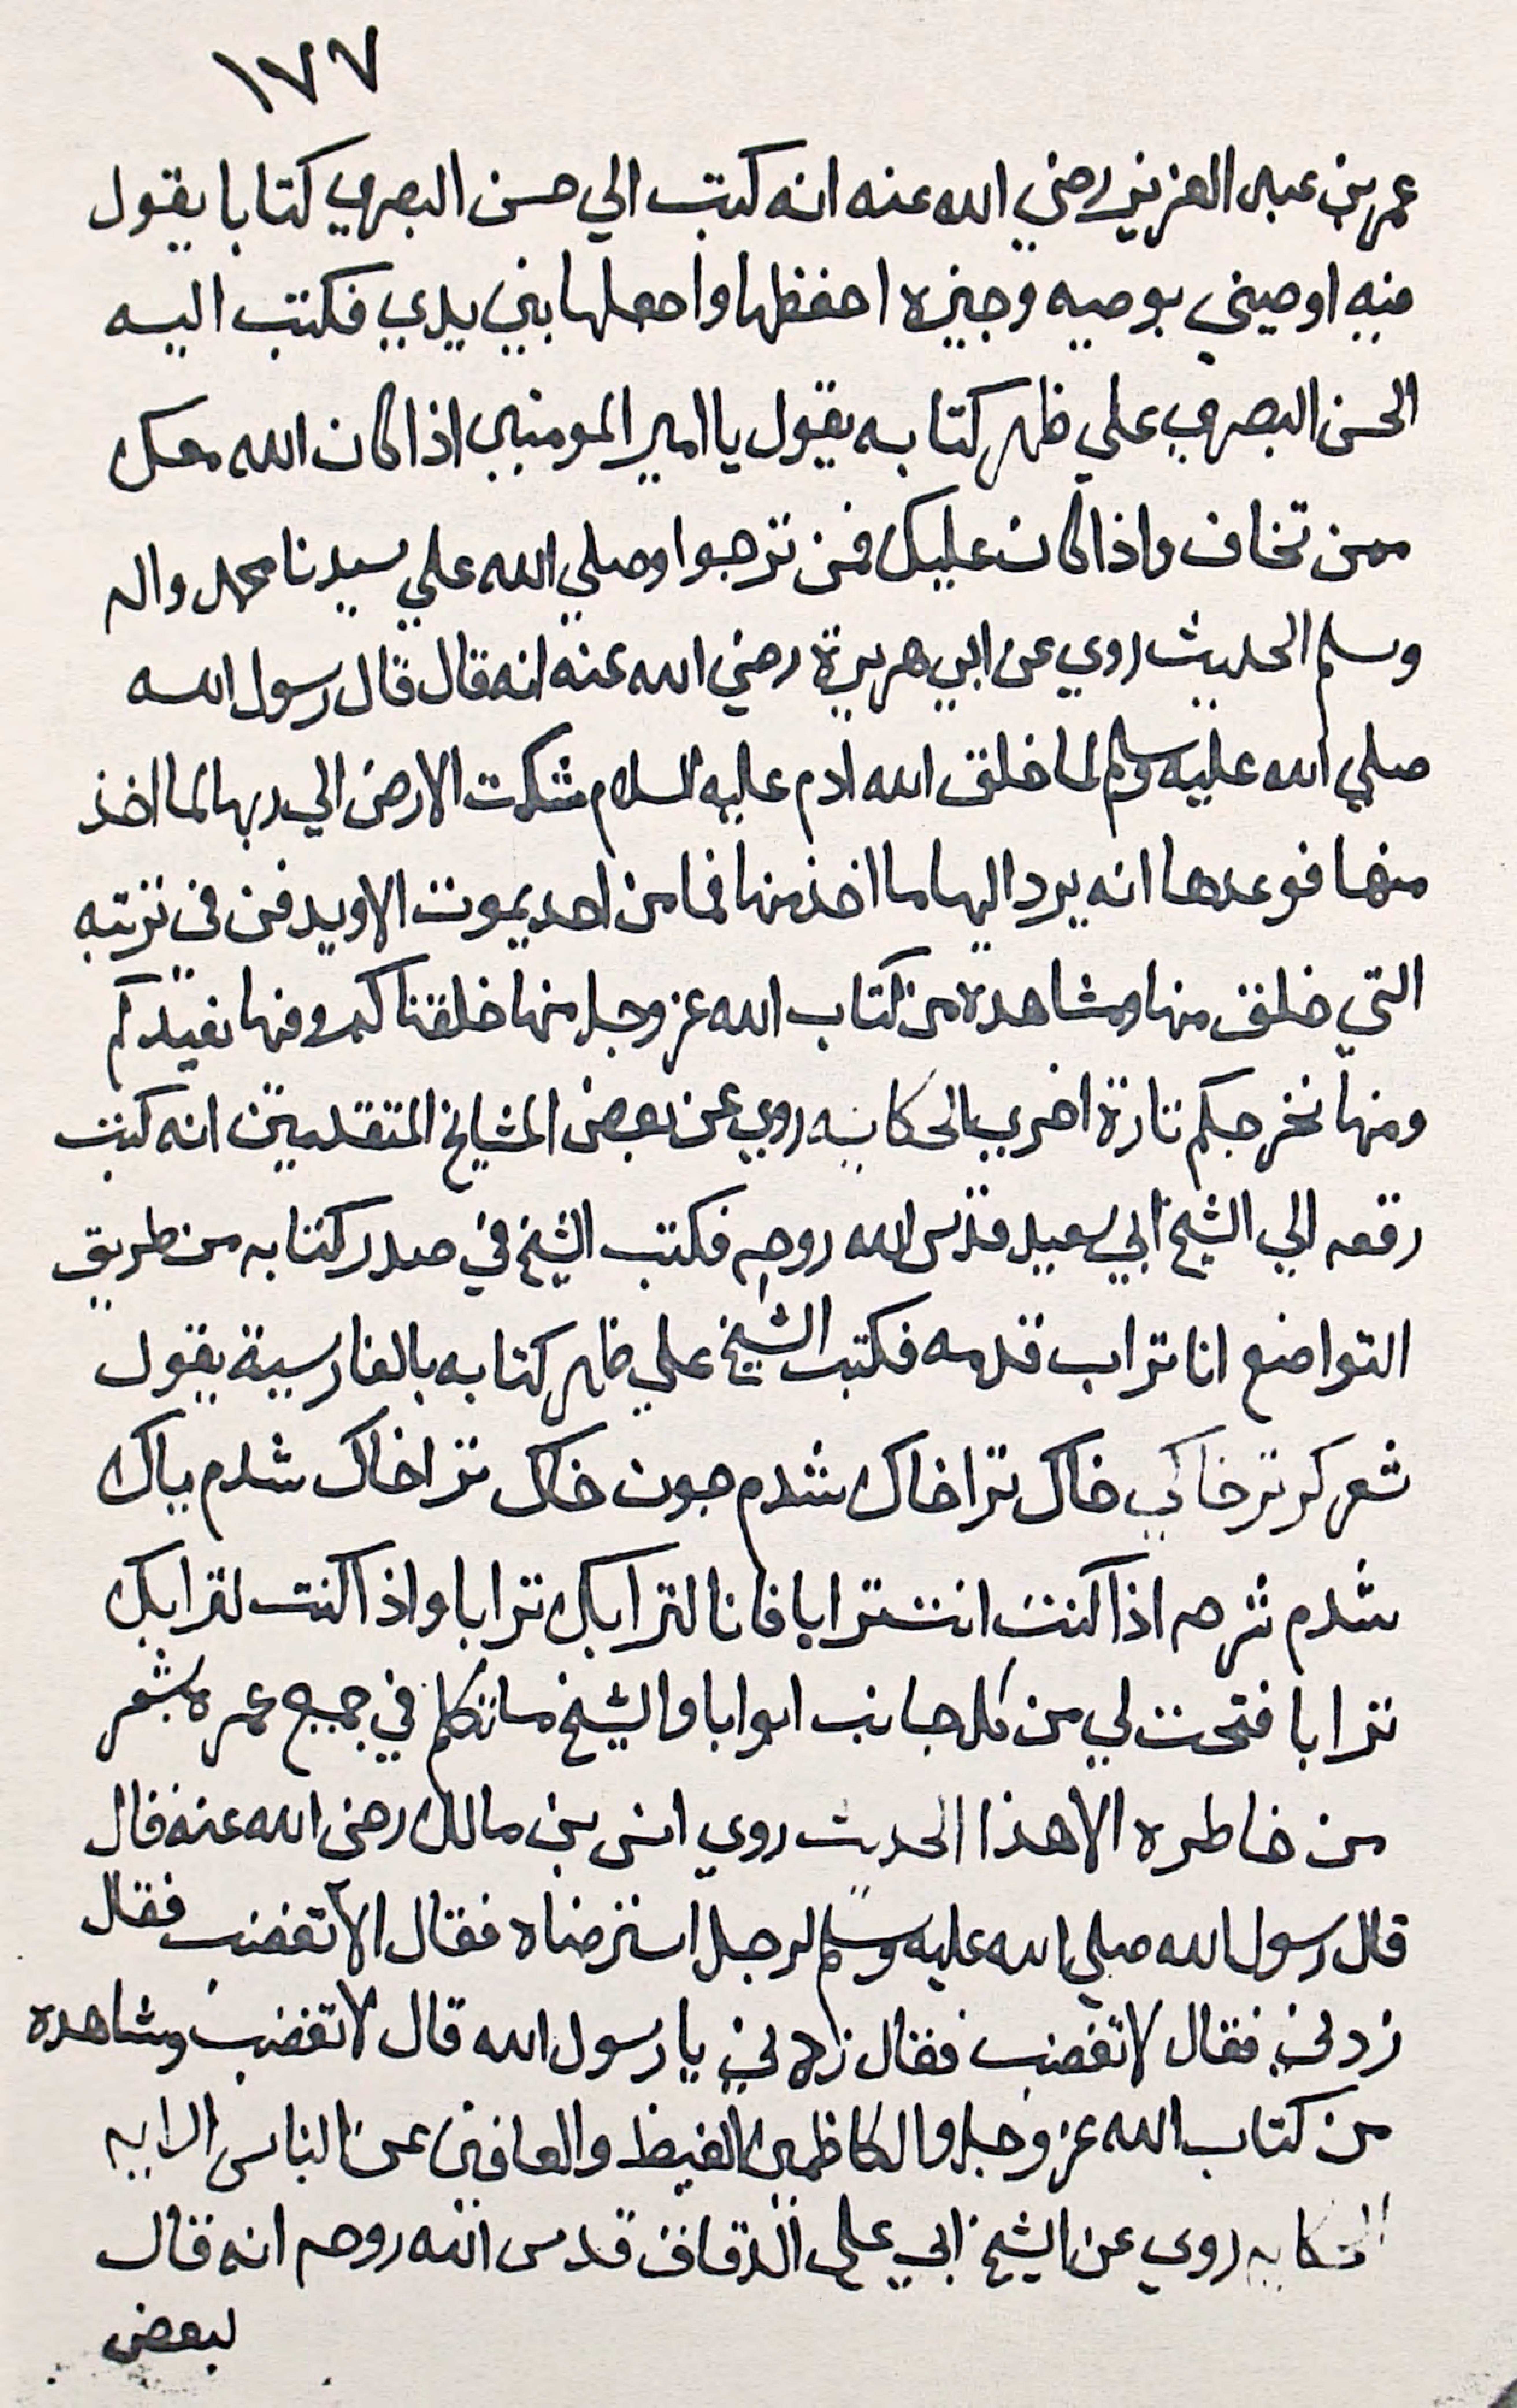 ١٧٧
عمر بن عبد العزيز رضي الله عنه انه كتب الي حسن البصري كتابا يقول
فيه اوصيني بوصيه وجيزه احفظها واجعلها بين يدي فكتب اليه
الحسن البصري علي ظهر كتابه يقول يا امير المومنين اذا كان الله معك
ممن تخاف واذا كان عليك فمن ترجوا وصلي الله علي سيدنا محمد واله
وسلم الحديث روي عن ابي هريرة رضي الله عنه انه قال قال رسول الله
صلي الله عليه وسلم لما خلق الله ادم عليه السلام شكت الارض الي ربها لما اخذ
منها فوعدها انه يرد اليها ما اخذ منها فما من احد يموت الا ويدفن في تربته
التي خلق منها ومشاهدة من كتاب الله عز وجل منها خلقناكم وفيها نعيدكم
ومنها نخرجكم تارة اخري الحكايه روي عن بعض المشايخ المتقدمين انه كتب
رقعه الي الشيخ ابي سعيد قدس الله روحه فكتب الشيخ في صدر كتابه من طريق
التواضع انا تراب قدمه فكتب الشيخ علي ظهر كتابه بالفارسية يقول
شعر كر تر خاكي خاك ترا خاك شدم جون خاك ترا خاك شدم باك
شدم شرحه اذا كنت انت ترابا فانا لترابك ترابا واذا كنت لترابك
ترابا فتحت لي من كل جانب ابوابا والشيخ ما تكلم في جميع عمره بشعر
من خاطره الا هذا الحديث روي انس بن مالك رضي الله عنه قال
قال رسول الله صلي الله عليه وسلم لرجل استرضاه فقال الا تغضب فقال
زدني فقال لا تغضب فقال زدني يا رسول الله قال لا تغضب ومشاهده
من كتاب الله عز وجل والكاظمين الغيظ والعافين عن الناس الايه
الحكايه روي عن الشيخ ابي علي الدقاق قدس الله روحه انه قال
لبعض